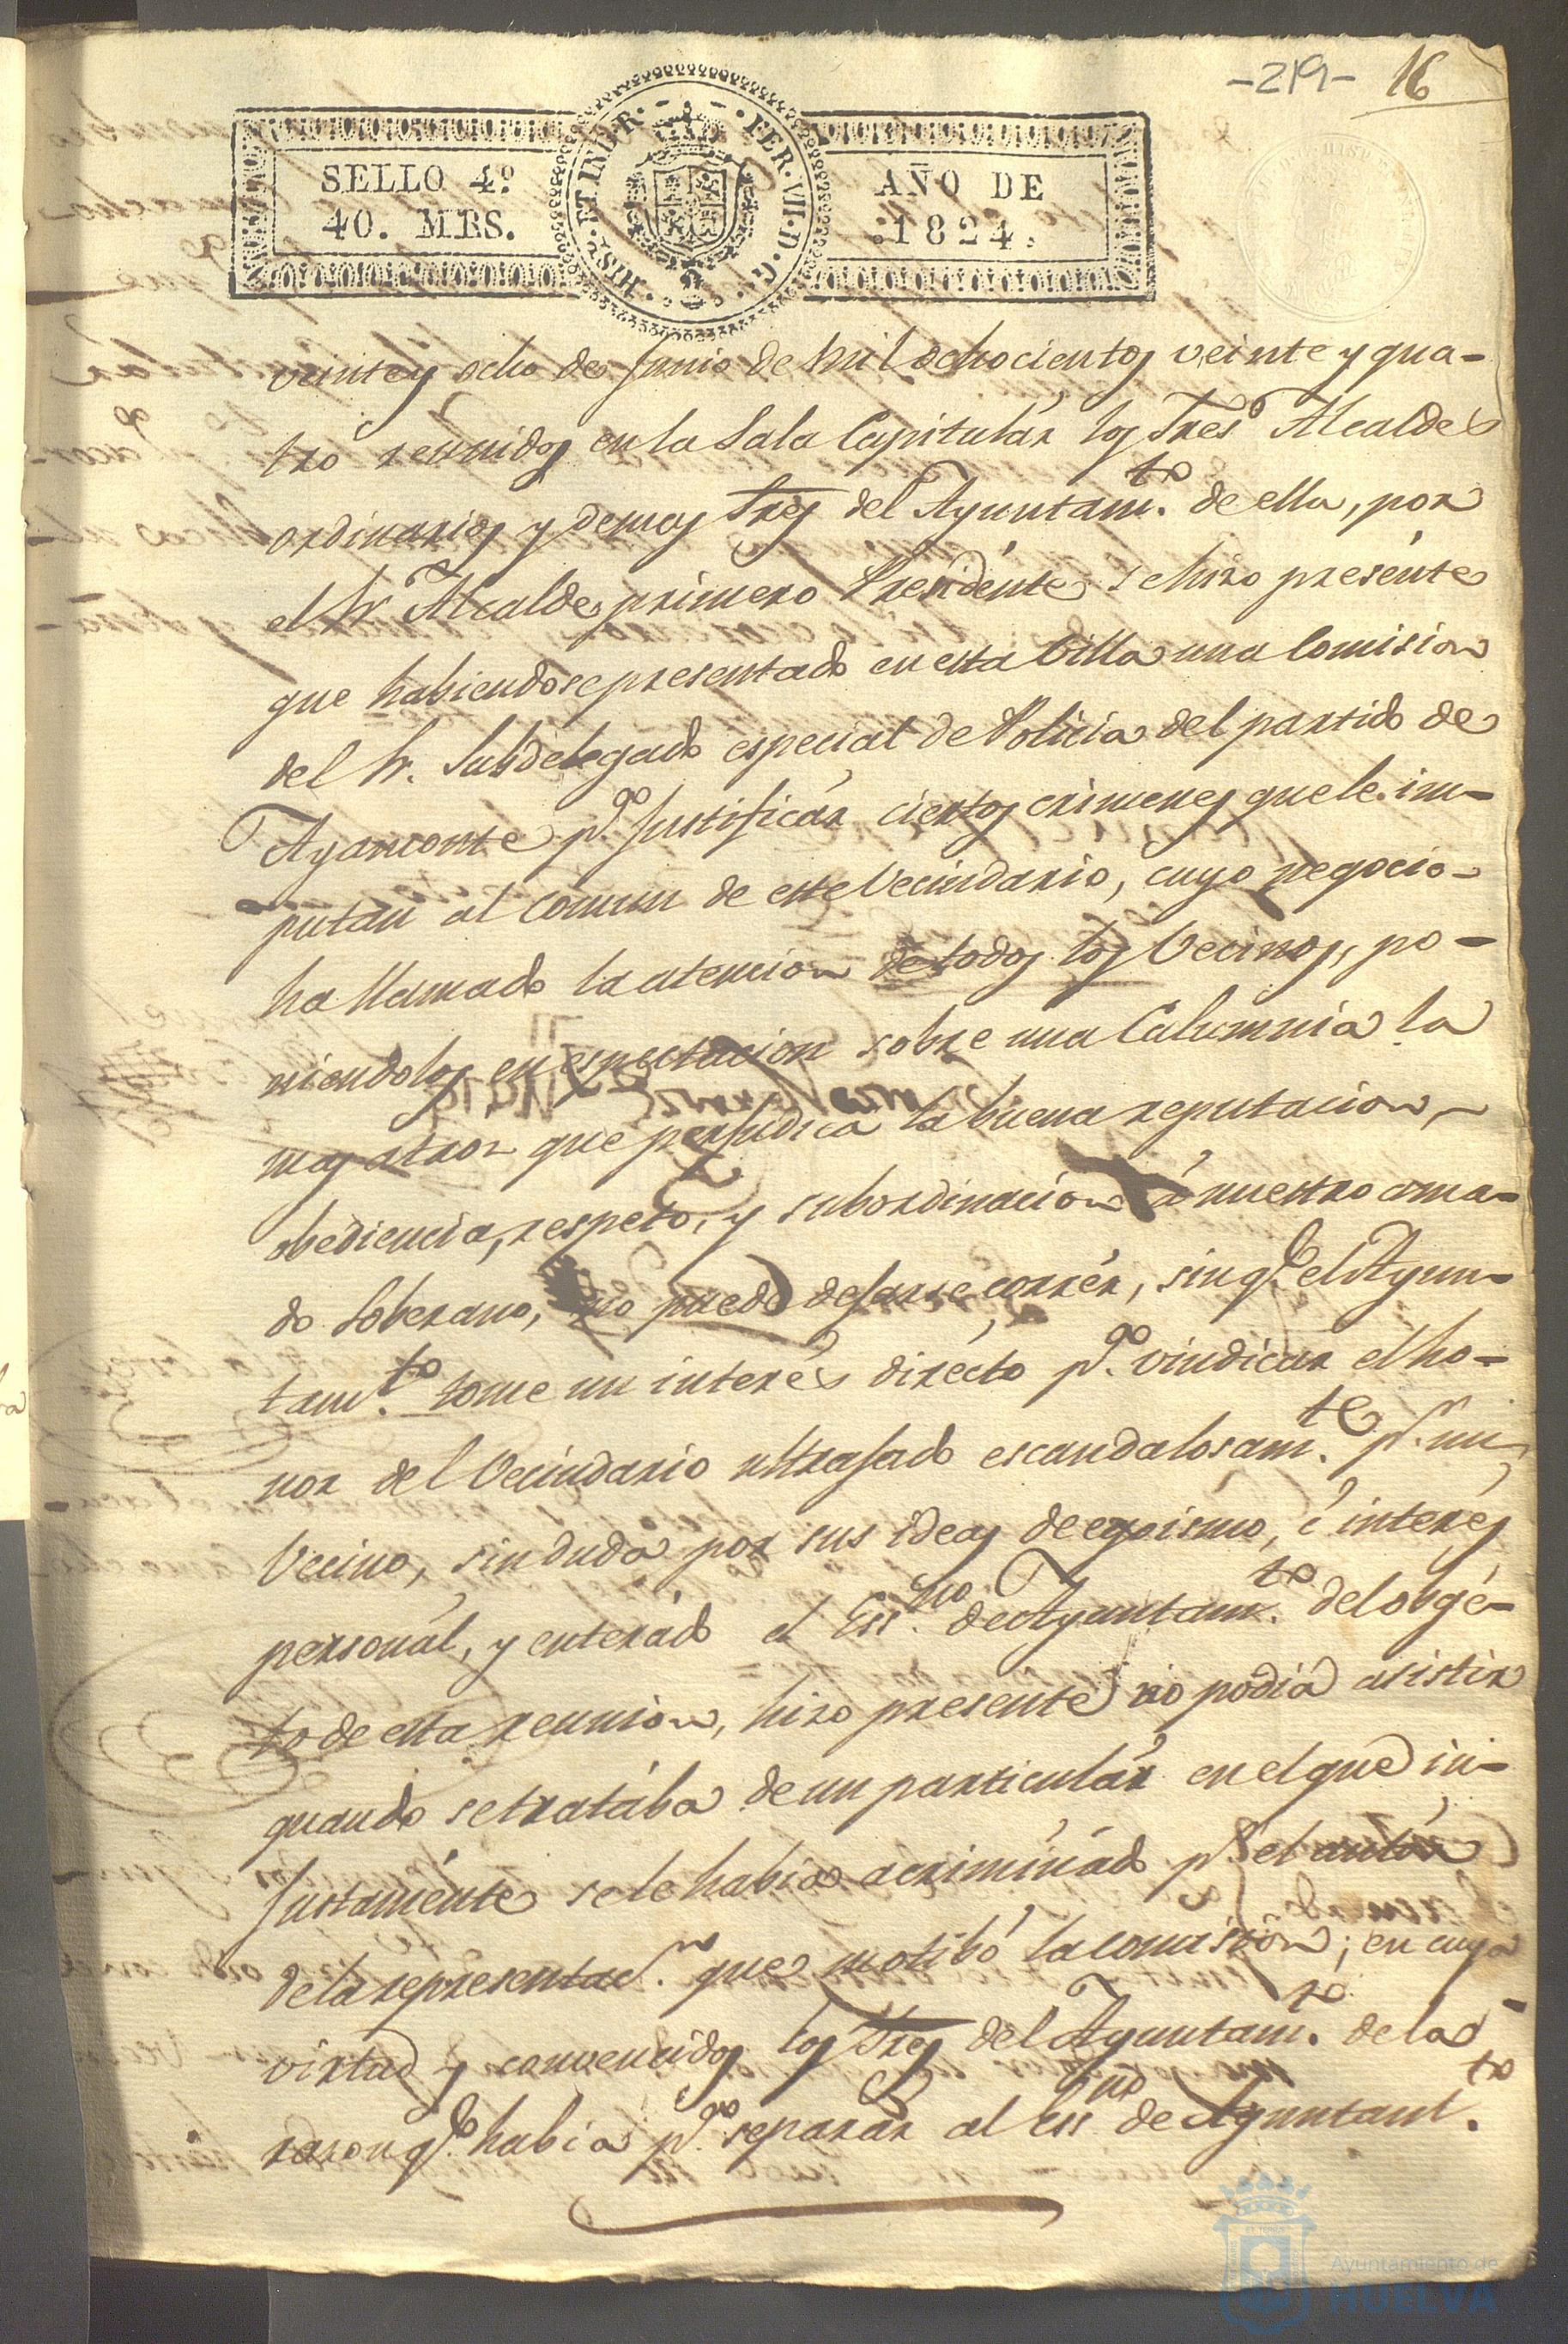 -219- 16
SELLO 4º
40. MRS.
HISP. ET IND. R. FER. VII. D. G.
AÑO DE
1824.
veinte y ocho de Junio de mil ochocientos veinte y qua-
tro reunidos en la Sala Capitulár los Sres Alcaldes
ordinarios y demas Sres del Ayuntamto. de ella, por
el Sr. Alcalde primero Presidénte se hizo presénte
que habiendose presentado en esta Villa una Comision
del Sr. Subdelegado especial de Policia del partido de
Ayamonte pª. Justificár ciertos crimenes que le im-
putan al comun de este Vecindario, cuyo negocio
ha llamado la atencion de todos los Vecinos, po-
niendolos en espectacion sobre una Calumnia la
mas atroz que perjudica la buena reputacion,
obediencia, respeto, y subordinacion á nuestro ama-
do Soberano, no puede dejarse corrér, sin qe. el Ayun-
tamto. tome un interés dirécto pª. vindicár el ho-
nor del Vecindario ultrajado escandalosamte. pr. un
Vecino, sin duda por sus ideas de egoismo, é interés
personál, y enterádo el Essno. de Ayuntamto. del obgé-
to de esta reunion, hizo presente no podia asistir
quando se tratába de un particulár en el que in-
justaménte se le habia acriminádo pr. el autór
de la representacn. que motibó la comisión; en cuya
virtud y convencidos los Sres del Ayuntamto. de la
razon qe. habia pª. separár al Essno de Ayuntamto.
Ayuntamiento de
HUELVA